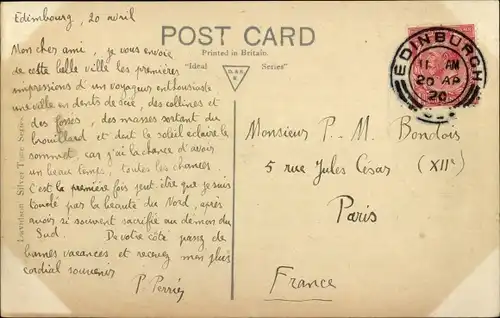 Edimbourg, 20 avril
Mon cher ami, je vous envoie
de cette belle ville les premières
impressions d'un voyageur enthousiaste
une ville en dents de scie, des collines et
des fosses, des masses sortant du
brouillard et dont le soleil éclaire le
sommet, car j'ai la chance d'avoir
un beau temps, toutes les chances.
C'est la première fois peut-être que je suis
touché par la beauté du Nord, après
avoir si souvent sacrifié au démon du
Sud. De votre côté passez de
bonnes vacances et recevez mon plus
cordial souvenir
P. Perrier
POST CARD
Printed in Britain.
"Ideal Series"
D.&S.
K.
Davidson Silver Tone Series
EDINBURGH
11 AM
20 AP
20
Monsieur P.-M. Bondois
5 rue Jules César (XIIe)
Paris
France